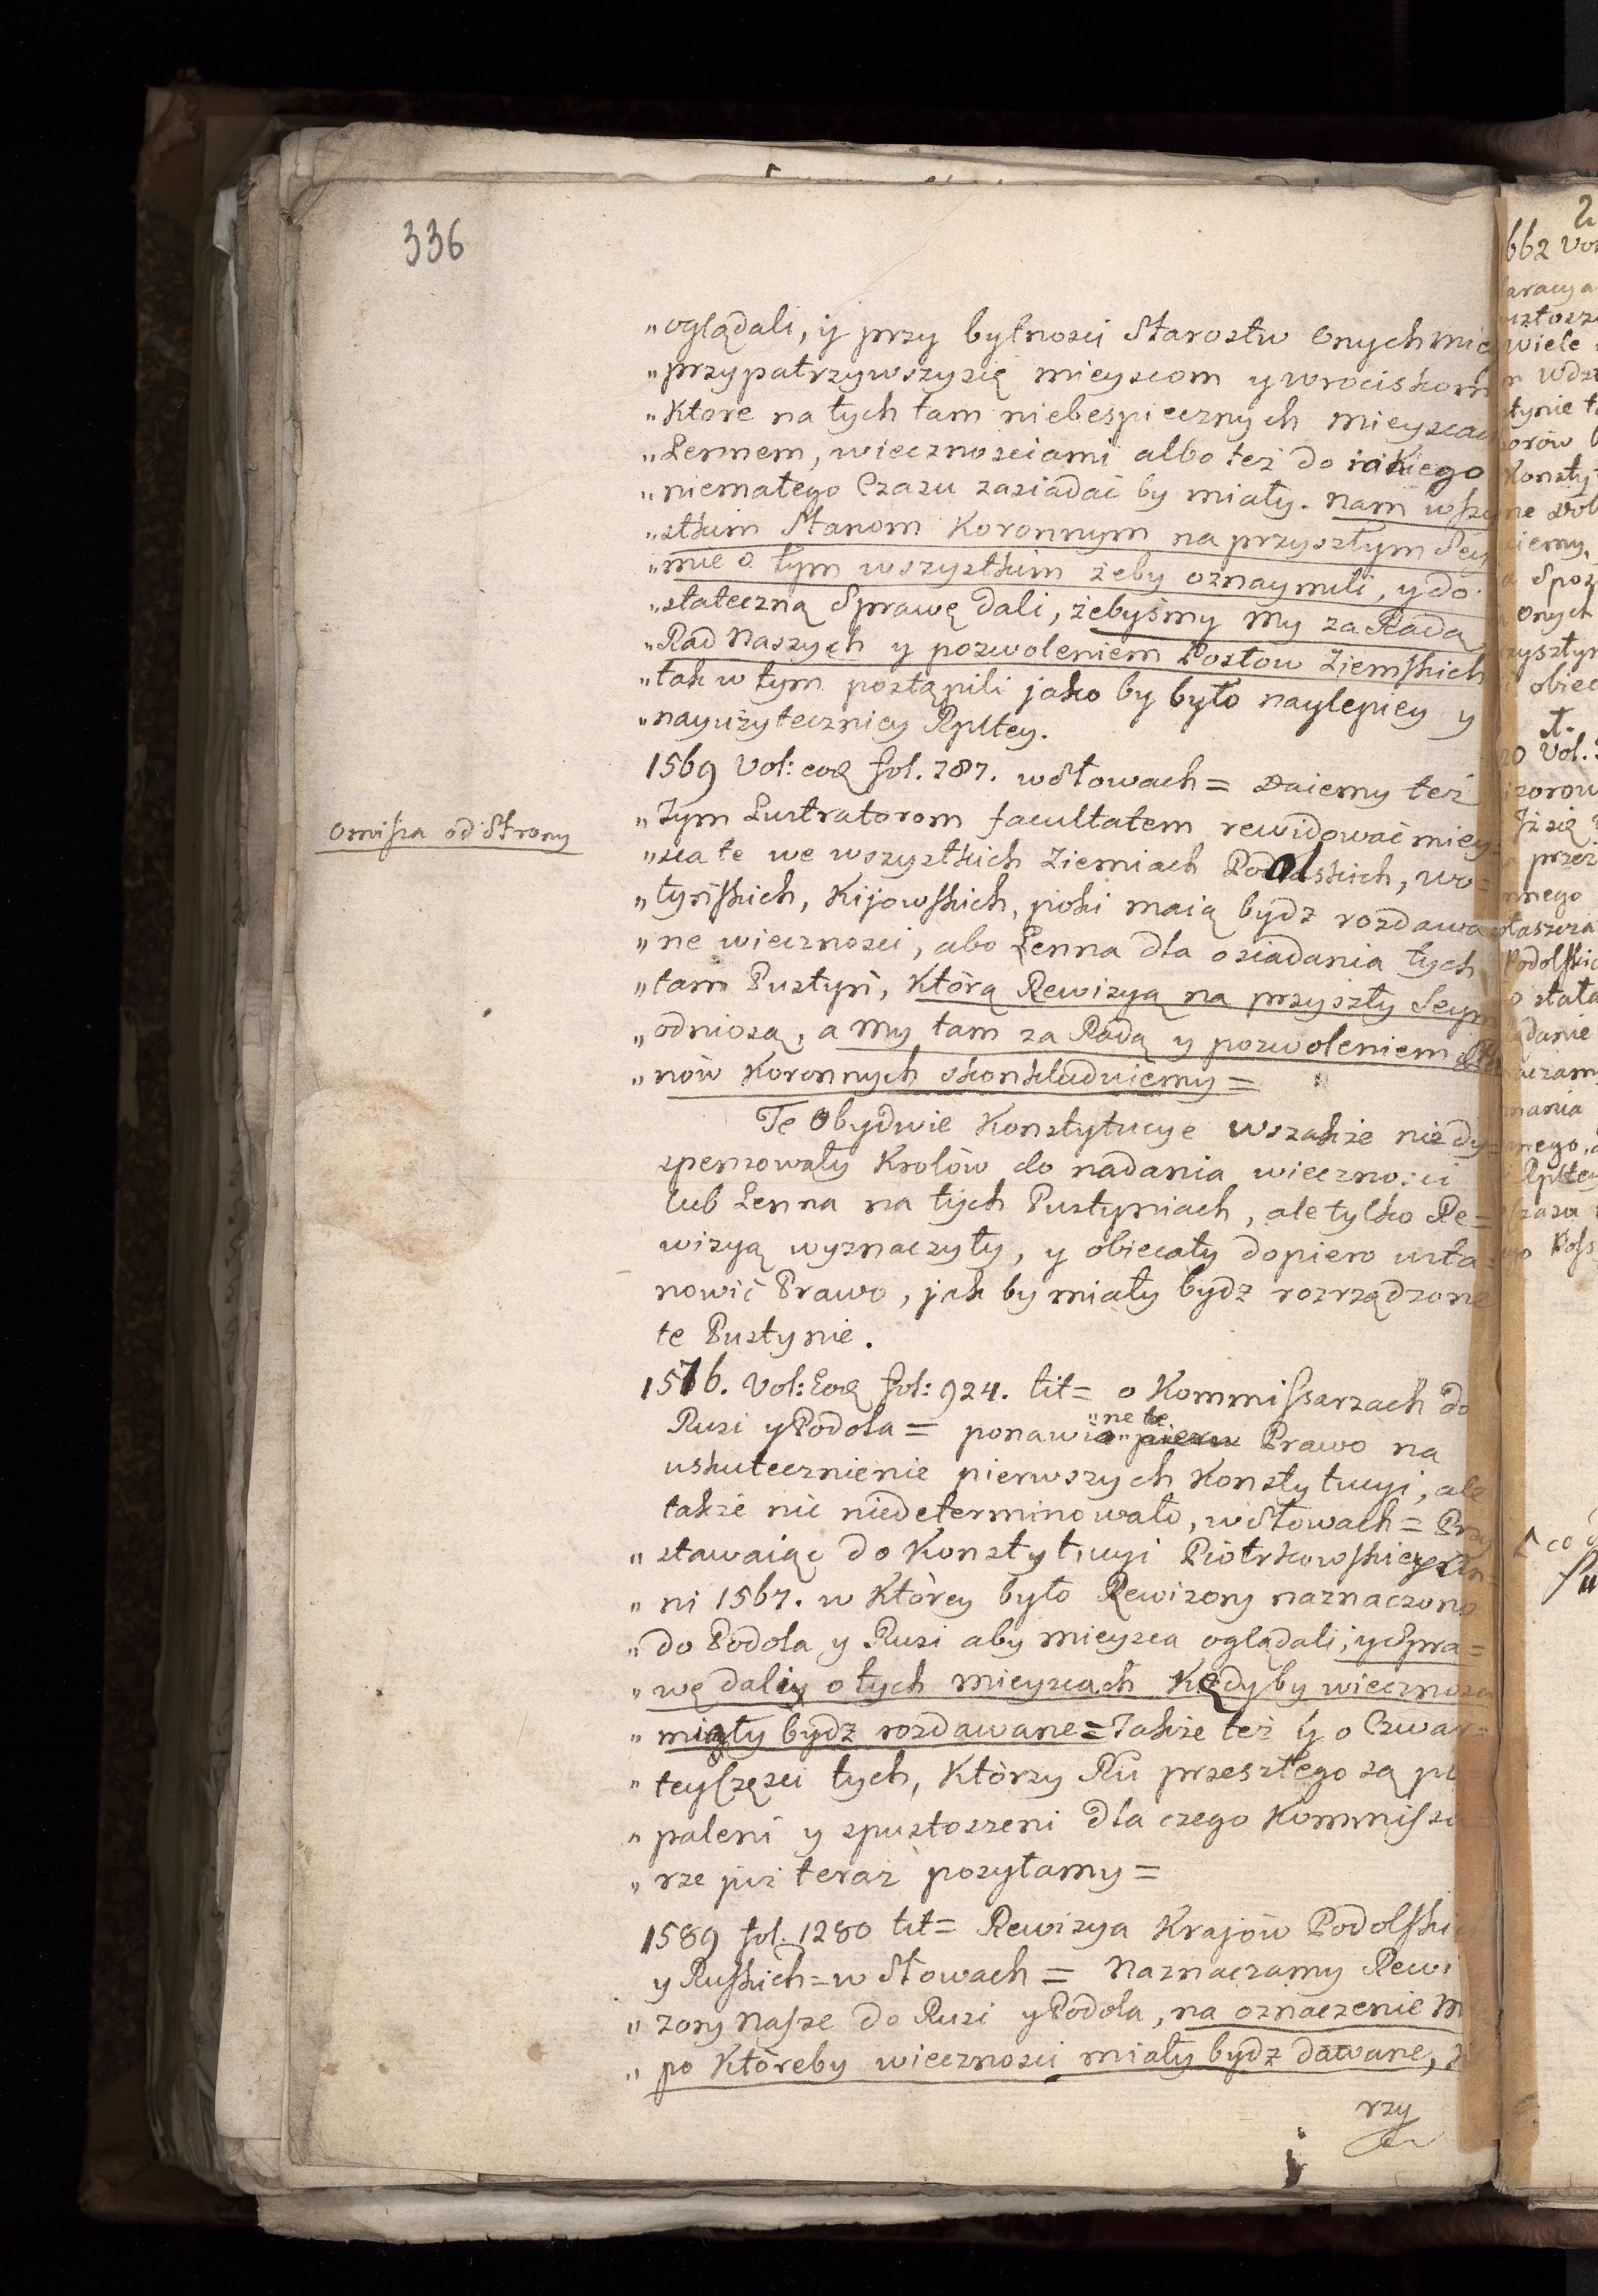 336
„oglądali, ÿ przy bytnosci Starostw Onych
„przypatrzywszysię mieyscom y wrociskom
„Ktore na tych tam niebespiecznych mieysca
„Lennem, wiecznosciami albo też do iakiego
„niemałego Czasu zasiadać by miały. nam wszy
„stkim Stanom Koronnym na przyszłym Sey
„mie o tym wszystkim żeby oznaymili, y do
„stateczną Sprawę dali, żebyśmy My za Radą
„Rad Naszych y pozwoleniem Posłow Ziemskich
„tak w tym postąpili jako by było naylepiey y
„nayużyteczniey Rpltey.
1569 Vol: eod fol. 787. w Słowach = Daiemy też
omissa od Strony
„Tym Lustratorom facultatem rewidować miey=
„sca te we wszystkich Ziemiach Podolskich, wo=
„łyńskich, Kijowskich, poki maią bydz rozdawa
„ne wiecznosci, abo Lenna dla osiadania tych
„tam Pustyń, Którą Rewizyą na przyszły Seym
„odniosą, a my tam za Radą y pozwoleniem Sta
„nów Koronnych skonkluduiemy =
Te Obydwie Konstytucye wszakże nie dy=
spensowały Krolów do nadania wiecznosci
lub Lenna na tych Pustyniach, ale tylko Re=
wizyą wyznaczyły, y obiecały dopiero usta=
nowić Prawo, jak by miały bydz rozrządzone
te Pustynie.
1576. Vol: Eod fol: 924. tit= o Kommissarzach do
Rusi y Podola = ponawia Prawo na
uskutecznienie pierwszych Konstytucyi, ale
także nic niedeterminowało, w Słowach = Przy
„stawaiąc do Konstytucyi Piotrkowskiey An=
„ni 1567. w Którey było Rewizory naznaczono
„do Podola y Rusi aby mieysca oglądali, y Spra=
„wę dali y o tych mieyscach Kędyby wiecznosci
„miały bydz rozdawane = Także też y o Czwar=
„teyczęsci tych, Którzy Ru przeszłego są po=
„paleni y spustoszeni dla czego Kommissa=
„rze już teraz posyłamy =
1589 fol. 1280 tit= Rewizya Krajów Podolski
y Ruskich = w Słowach = Naznaczamy Rewi
„zory Nasze do Rusi y Podola, na oznaczenie
„po Któreby wiecznosci miały bydz dawane,
rzy